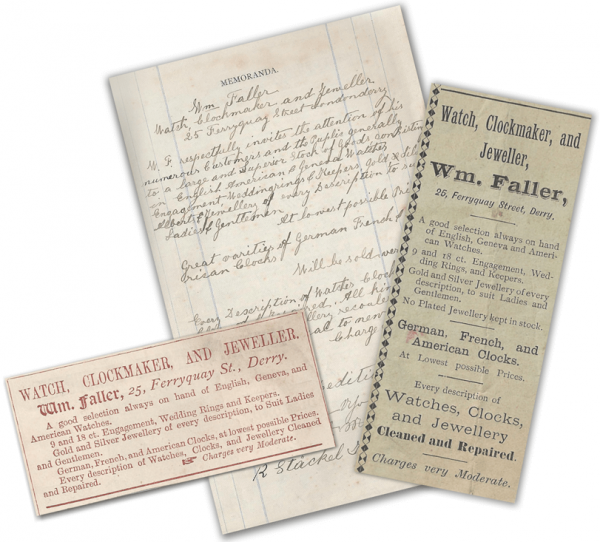 MEMORANDA.
Wm Faller
Watch, Clockmaker and Jeweller
25 Ferryquay Street Londonderry
W. F. respectfully invites the attention of his
numerous Customers and the Public generally
to a large and Superior Stock of Goods consisting
in English American & Geneva Watches
Engagement, Weddingrings & Keepers, Gold &
Alberts, Jewellery of every Description to
Ladies & Gentlemen. At lowest possible
Great varieties of German French
Clocks
Will be sold
Every Description of Watches Clock
All
Charge
R Stäckel
Watch, Clockmaker, and
Jeweller,
Wm. Faller,
25, Ferryquay Street, Derry.
A good selection always on hand
of English, Geneva and Ameri-
can Watches.
9 and 18 ct. Engagement, Wed-
ding Rings, and Keepers.
Gold and Silver Jewellery of every
description, to suit Ladies and
Gentlemen.
No Plated Jewellery kept in stock.
German, French, and
American Clocks.
At Lowest possible Prices.
Every description of
Watches, Clocks,
and Jewellery
Cleaned and Repaired.
Charges very Moderate.
WATCH, CLOCKMAKER, AND JEWELLER.
Wm. Faller, 25, Ferryquay St., Derry.
A good selection always on hand of English, Geneva, and
American Watches.
9 and 18 ct. Engagement, Wedding Rings and Keepers.
Gold and Silver Jewellery of every description, to Suit Ladies
and Gentlemen.
German, French, and American Clocks, at lowest possible Prices.
Every description of Watches, Clocks, and Jewellery Cleaned
and Repaired. ☞ Charges very Moderate.